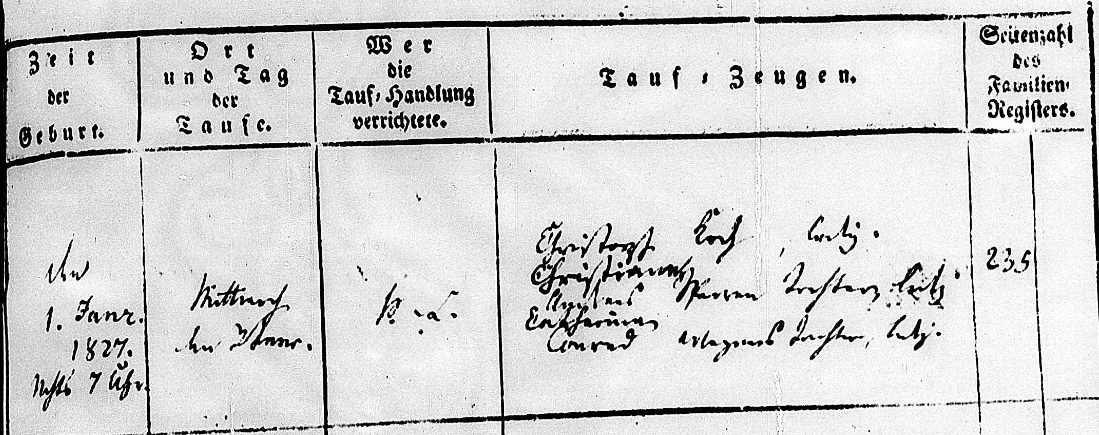 Zeit
der
Geburt.
Ort
und Tag
der
Taufe.
Wer
die
Tauf-Handlung
verrichtete.
Tauf-Zeugen.
Seitenzahl
des
Familien-
Registers.
den
1. Janr.
1827.
Nchts 7 Uhr.
Mittwoch
den Janr.
Christoph Koch, ledig.
Christiane
Sparren Tochter, ledig
Catharina
Conrad Tochter, ledig.
235